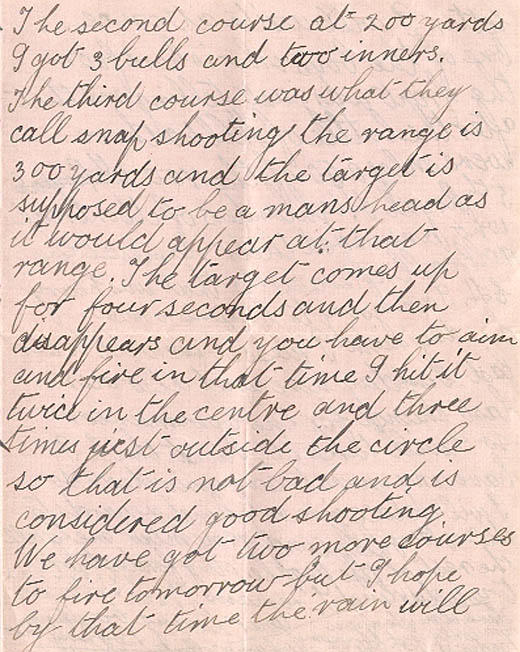 The second course at 200 yards
I got 3 bulls and two inners.
The third course was what they
call snap shooting the range is
300 yards and the target is
supposed to be a mans head as
it would appear at that
range. The target comes up
for four seconds and then
disappears and you have to aim
and fire in that time I hit it
twice in the centre and three
times just outside the circle
so that is not bad and is
considered good shooting
We have got two more courses
to fire tomorrow but I hope
by that time the rain will